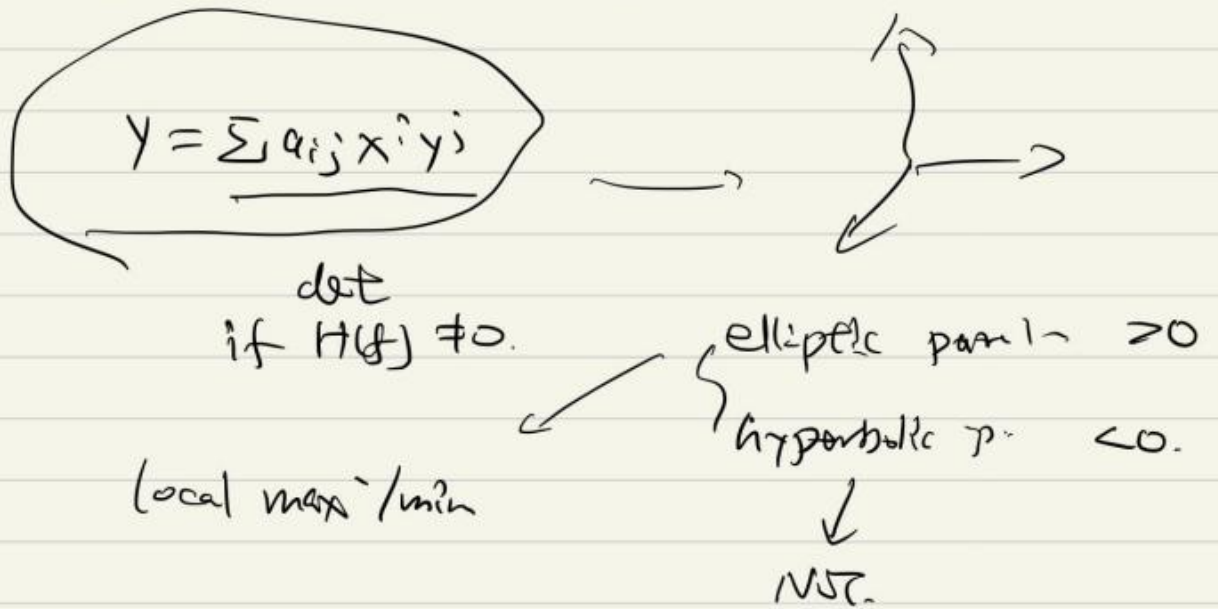 Y = Σ aij xⁱ yʲ
det
if H(f) ≠ 0.
elliptic >0
hyperbolic p. <0.
local max/min